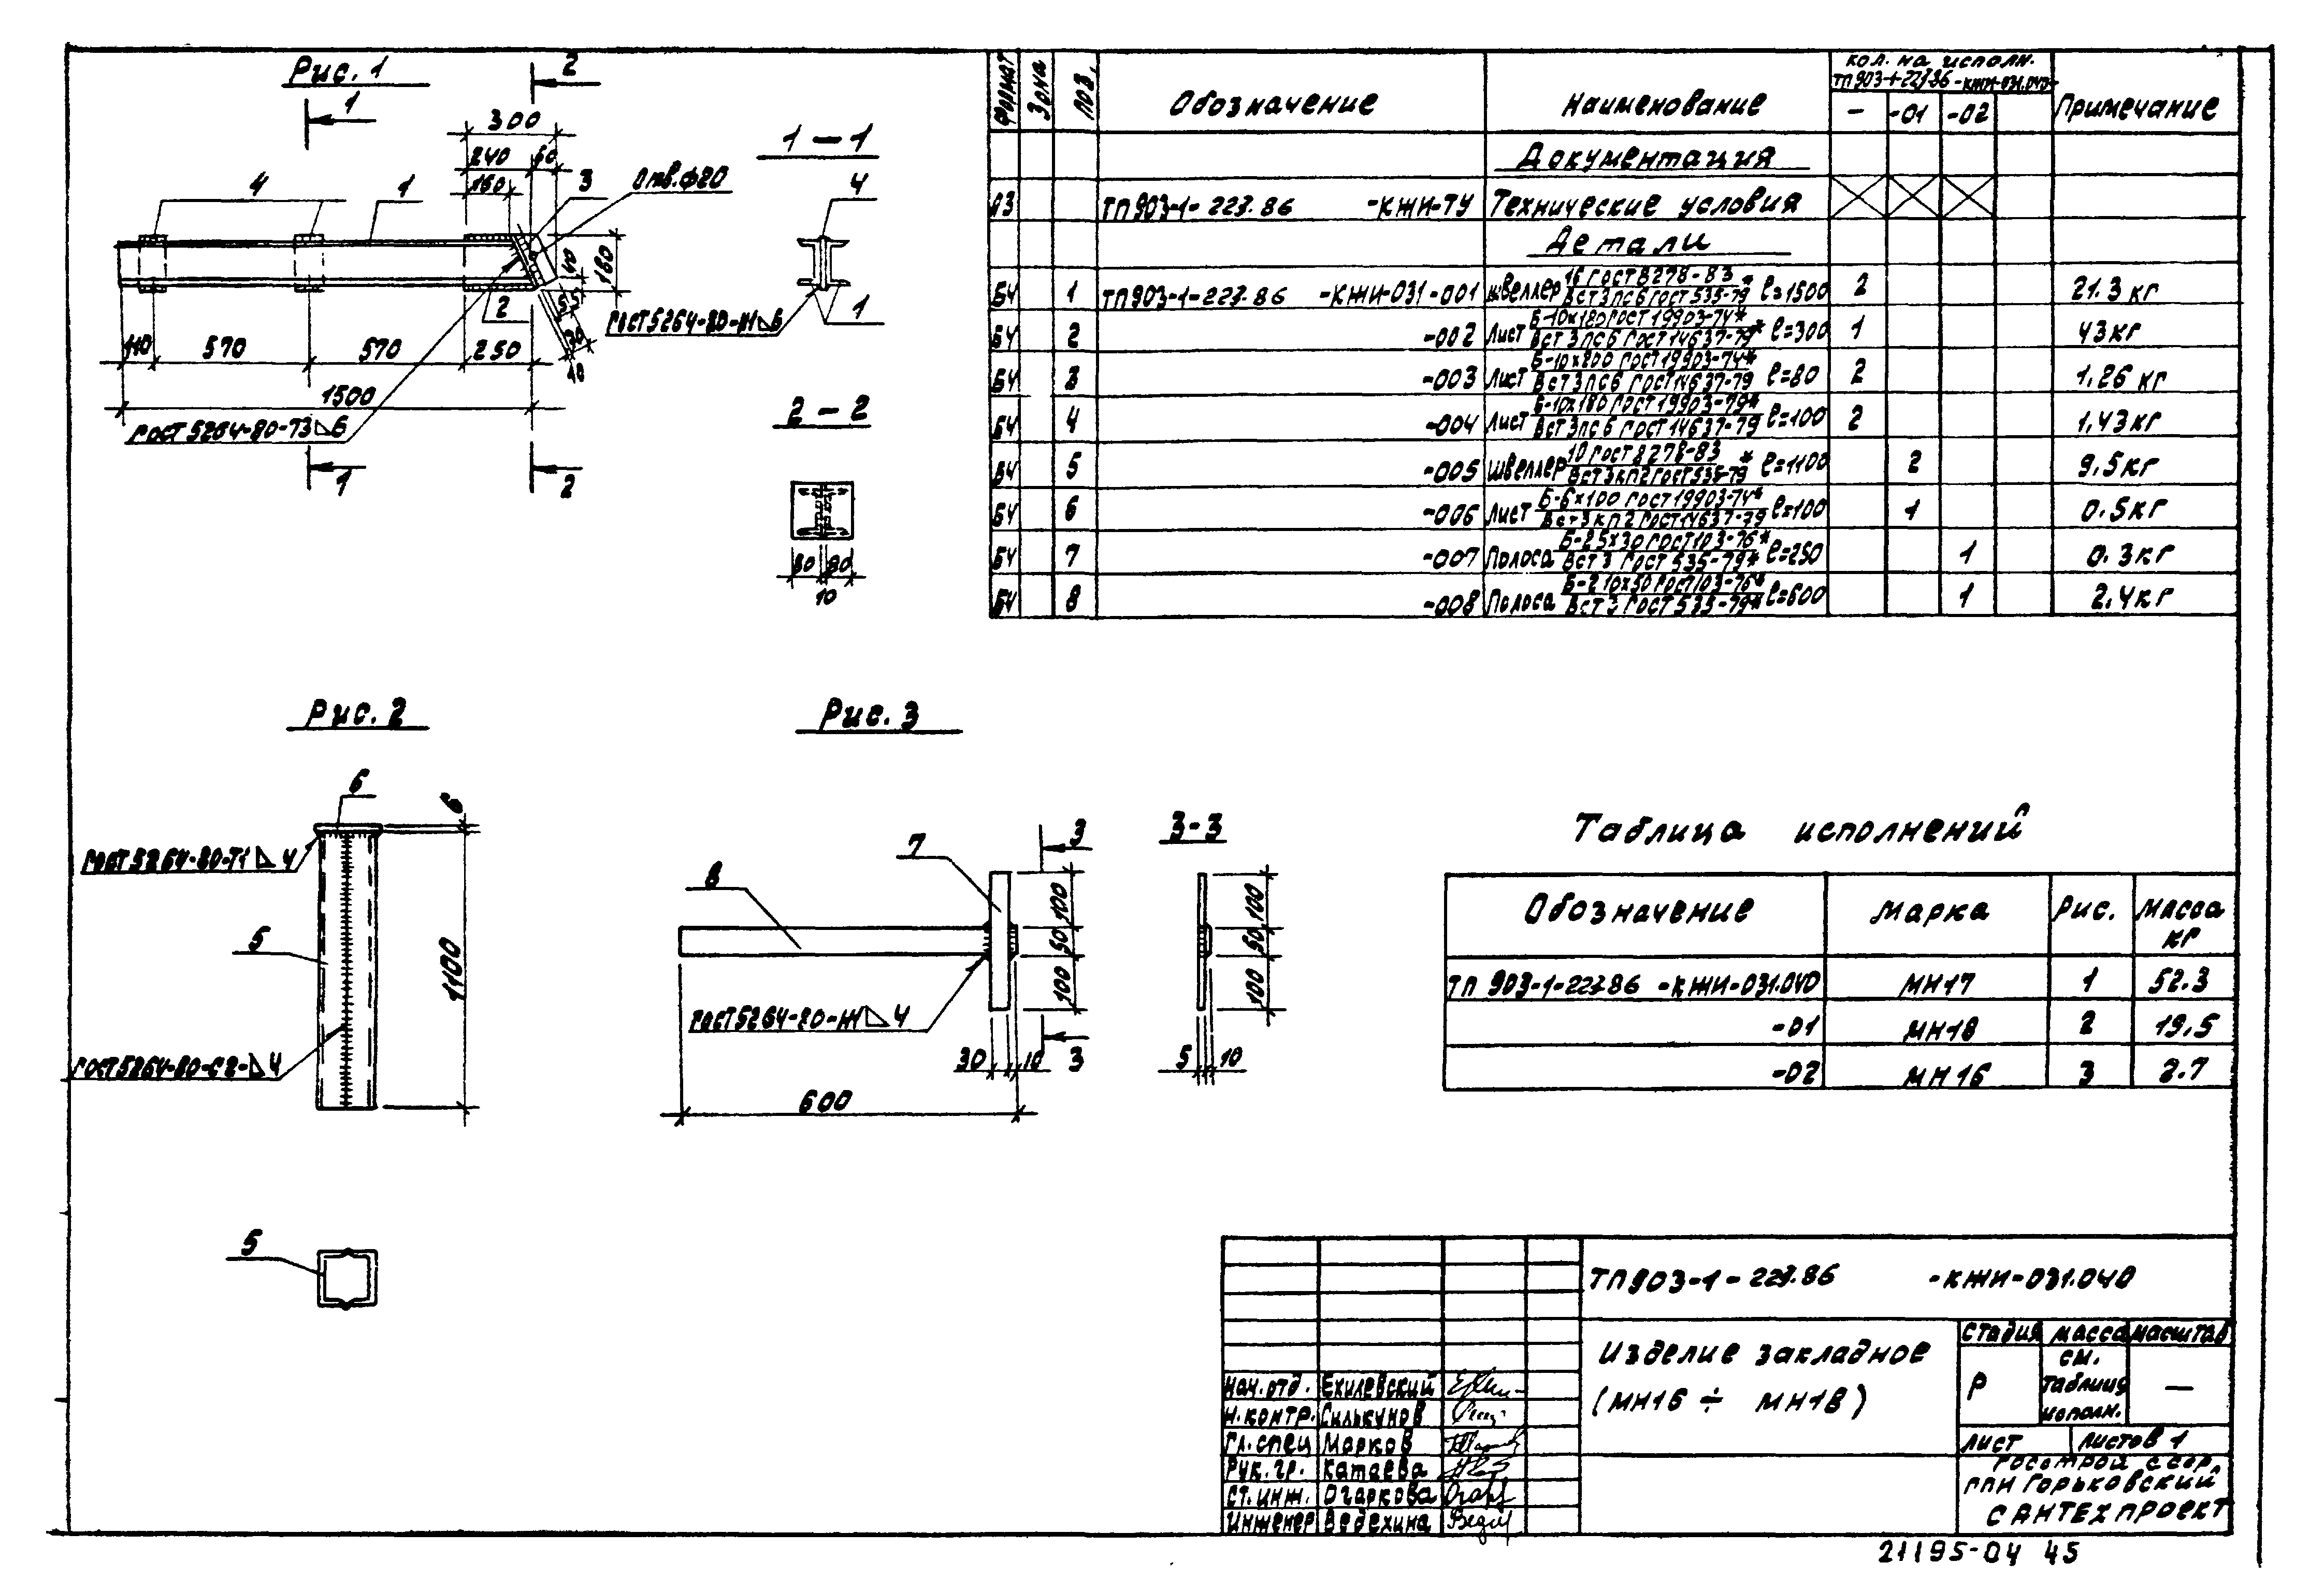 Рис. 1
1
2
300
240 60
160
4
1
3
Отв.ф20
160
2
110 570 570 250
1500
ГОСТ 5264-80-Т3 6
ГОСТ 5264-80-Н1 6
40
1
2
1-1
4
1
2-2
80 80
10
Формат Зона Поз. Обозначение Наименование Кол. на исполн. Примечание
- -01 -02
Документация
А3 ТП 903-1-227.86 -КЖИ-ТУ Технические условия
Детали
БЧ 1 ТП903-1-227.86 -КЖИ-031-001 Швеллер 16 ГОСТ 8278-83 / Вст3пс6 ГОСТ 535-79* ℓ=1500 2 21.3 кг
БЧ 2 -002 Лист Б-10х180 ГОСТ 19903-74* / Вст3пс6 ГОСТ 14637-79* ℓ=300 1 43кг
БЧ 3 -003 Лист Б-10х200 ГОСТ 19903-74* / Вст3пс6 ГОСТ 14637-79 ℓ=80 2 1,26 кг
БЧ 4 -004 Лист Б-10х180 ГОСТ 19903-74* / Вст3пс6 ГОСТ 14637-79 ℓ=100 2 1,43кг
БЧ 5 -005 Швеллер 10 ГОСТ 8278-83 / Вст3кп2 ГОСТ 535-79* ℓ=1100 2 9.5кг
БЧ 6 -006 Лист Б-6х100 ГОСТ 19903-74* / Вст3кп2 ГОСТ 14637-79 ℓ=100 1 0.5кг
БЧ 7 -007 Полоса ГОСТ 103-76* / Вст3 ГОСТ 535-79* ℓ=250 1 0.3кг
БЧ 8 -008 Полоса ГОСТ 103-76* / Вст3 ГОСТ 535-79* ℓ=600 1 2,4кг
Рис. 2
6
6
ГОСТ 5264-80-Т1 4
5
1100
ГОСТ 5264-80-С2- 4
5
Рис. 3
8
7
3
100
50
100
ГОСТ 5264-80-Н1 4
30 10
3
600
3-3
100
50
100
5 10
Таблица исполнений
Обозначение Марка Рис. Масса кг
ТП 903-1-227.86 -КЖИ-031.040 МН17 1 52.3
-01 МН18 2 19,5
-02 МН16 3 2.7
ТП903-1-227.86 -КЖИ-031.040
Изделие закладное
(МН16 ÷ МН18)
Стадия Масса Масштаб
Р см. таблицу исполн. —
Лист Листов 1
Нач.отд. Ехилевский
Н.контр. Силькунов
Гл.спец Марков
Рук.гр. Катаева
Ст.инж. Огаркова
Инженер Ведехина
Госстрой СССР
ГПИ Горьковский
САНТЕХПРОЕКТ
21195-04 45